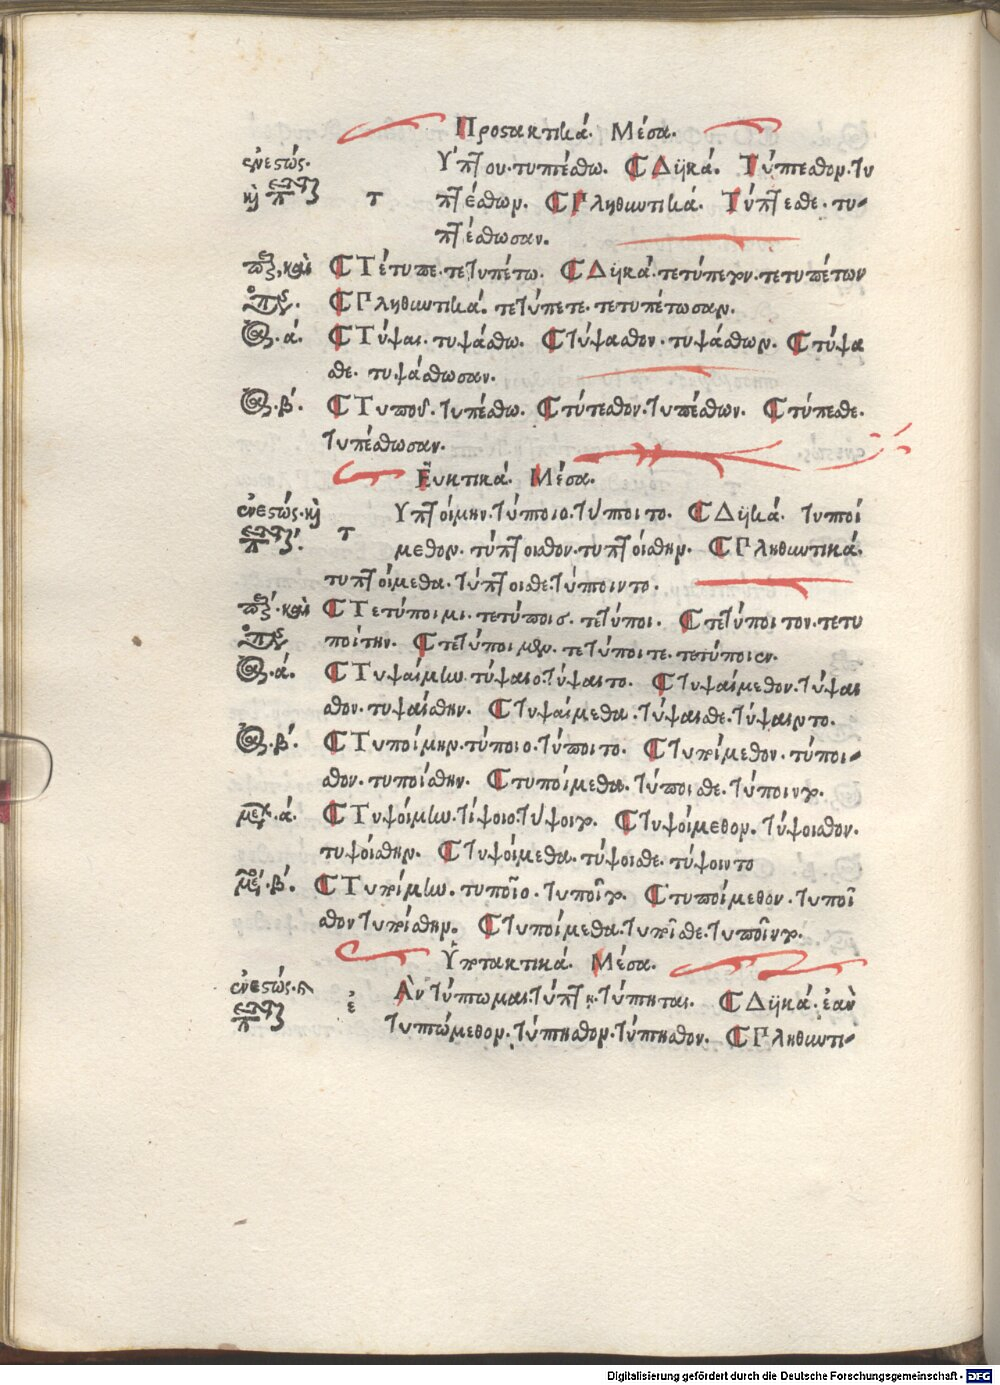 Προστακτικά. Μέσα.
ἐνεστώς. Ὑπτου. τυπτέσθω. Δυϊκά. Τύπτεσθον. τυ
καὶ τ πτέσθων. Πληθυντικά. Τύπτεσθε. τυ-
πτέσθωσαν.
καὶ Τέτυπε. τετυπέτω. Δυϊκά. τετύπετον. τετυπέτων
Πληθυντικά. τετύπετε. τετυπέτωσαν.
ά. Τύψαι. τυψάσθω. τύψασθον. τυψάσθων. τύψα
σθε. τυψάσθωσαν.
β´. Τυποῦ. τυπέσθω. τύπεσθον. τυπέσθων. τύπεσθε.
τυπέσθωσαν.
Εὐκτικά. Μέσα.
ἐνεστώς. καὶ Υπτοίμην. τύποιο. τύποιτο. Δυϊκά. τυποί
τ μεθον. τύπτοισθον. τυπτοίσθην. Πληθυντικά.
τυπτοίμεθα. τύπτοισθε. τύποιντο.
καὶ Τετύποιμι. τετύποις. τετύποι. τετύποιτον. τετυ
ποίτην. τετύποιμεν. τετύποιτε. τετύποιεν.
ά. Τυψαίμην. τύψαιο. τύψαιτο. τυψαίμεθον. τύψαι
σθον. τυψαίσθην. τυψαίμεθα. τύψαισθε. τύψαιντο.
β´. Τυποίμην. τύποιο. τύποιτο. τυποίμεθον. τύποι-
σθον. τυποίσθην. τυποίμεθα. τύποισθε. τύποιντο.
ά. Τυψοίμην. τύψοιο. τύψοιτο. τυψοίμεθον. τύψοισθον.
τυψοίσθην. τυψοίμεθα. τύψοισθε. τύψοιντο
β´. Τυποίμην. τυποῖο. τυποῖτο. τυποίμεθον. τυποῖ
σθον τυποίσθην. τυποίμεθα. τυποῖσθε. τυποῖντο.
Ὑποτακτικά. Μέσα.
ἐνεστώς. ἐ Ὰν τύπτωμαι. τύπτῃ. τύπτηται. Δυϊκά. ἐὰν
τυπτώμεθον. τύπτησθον. τύπτησθον. Πληθυντι-
Digitalisierung gefördert durch die Deutsche Forschungsgemeinschaft - DFG